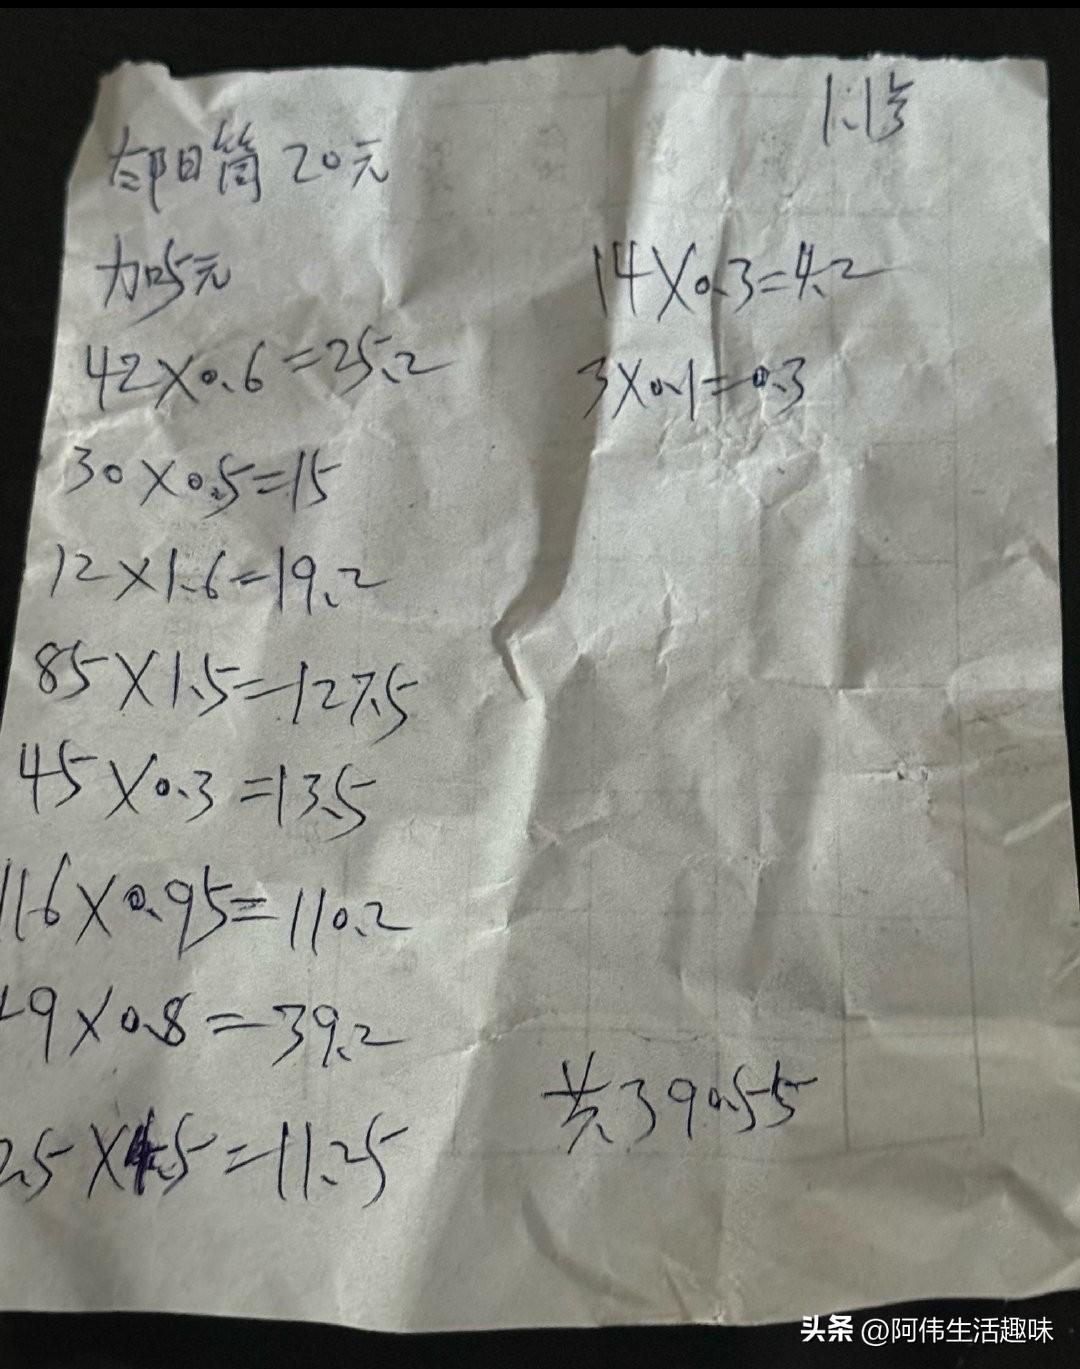 1.1号
阳筒 20元
加5元
42×0.6=25.2
30×0.5=15
12×1.6=19.2
85×1.5=127.5
45×0.3=13.5
116×0.95=110.2
49×0.8=39.2
2.5×4.5=11.25
14×0.3=4.2
3×0.1=0.3
共390.55
头条 @阿伟生活趣味